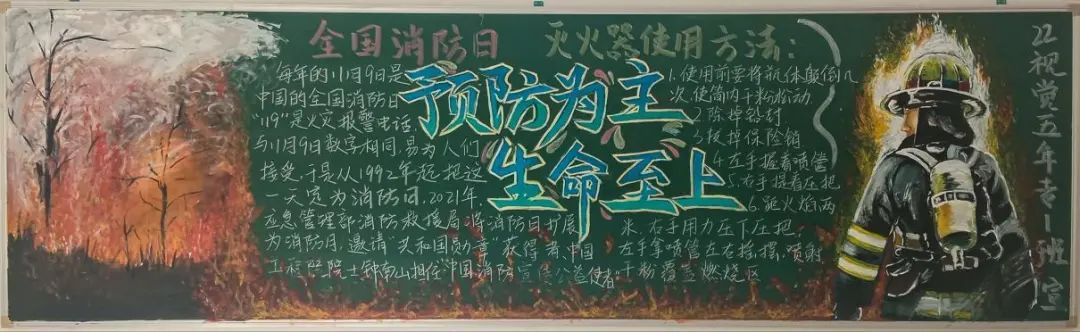 全国消防日
每年的11月9日是
中国的全国消防日
"119"是火灾报警电话,
与11月9日数字相同,易为人们
接受,于是从1992年起,把这
一天定为消防日.2021年,
应急管理部消防救援局将消防日扩展
为消防月.邀请"共和国勋章"获得者,中国
工程院院士钟南山担任"中国消防宣传公益使者"
预防为主
生命至上
灭火器使用方法:
1.使用前要将瓶体颠倒几
次,使筒内干粉松动
2.除掉铅封
3.拔掉保险销
4.左手握着喷管
5.右手提着压把
6.距火焰两
米,右手用力压下压把,
左手拿喷管左右摇摆,喷射
干粉覆盖燃烧区
22视觉五年专1班宣